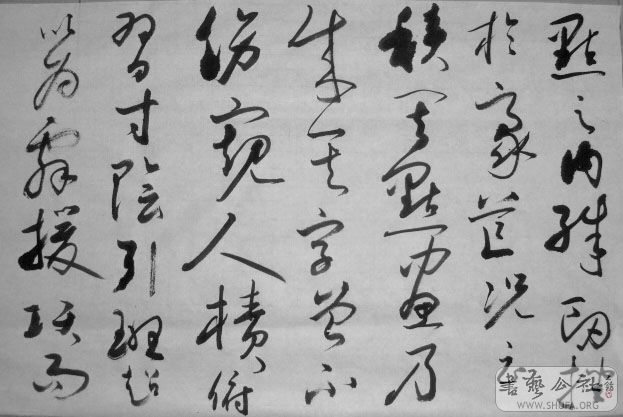 點之內殊衄挫
於豪芒況云
積其點畫乃
成其字曾不
傍窺尺牘俯
習寸陰引班超
以為辭援項而
書藝公社
WWW.SHUFA.ORG